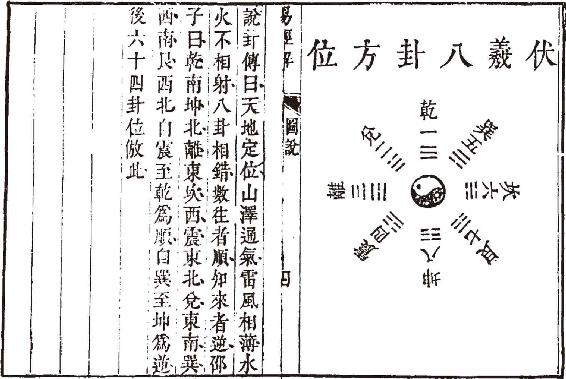 伏羲八卦方位
乾一
兌二
離三
震四
巽五
坎六
艮七
坤八
易經解
圖說
四
說卦傳曰天地定位山澤通氣雷風相薄水
火不相射八卦相錯數往者順知來者逆邵
子曰乾南坤北離東坎西震東北兌東南巽
西南艮西北自震至乾為順自巽至坤為逆
後六十四卦位倣此